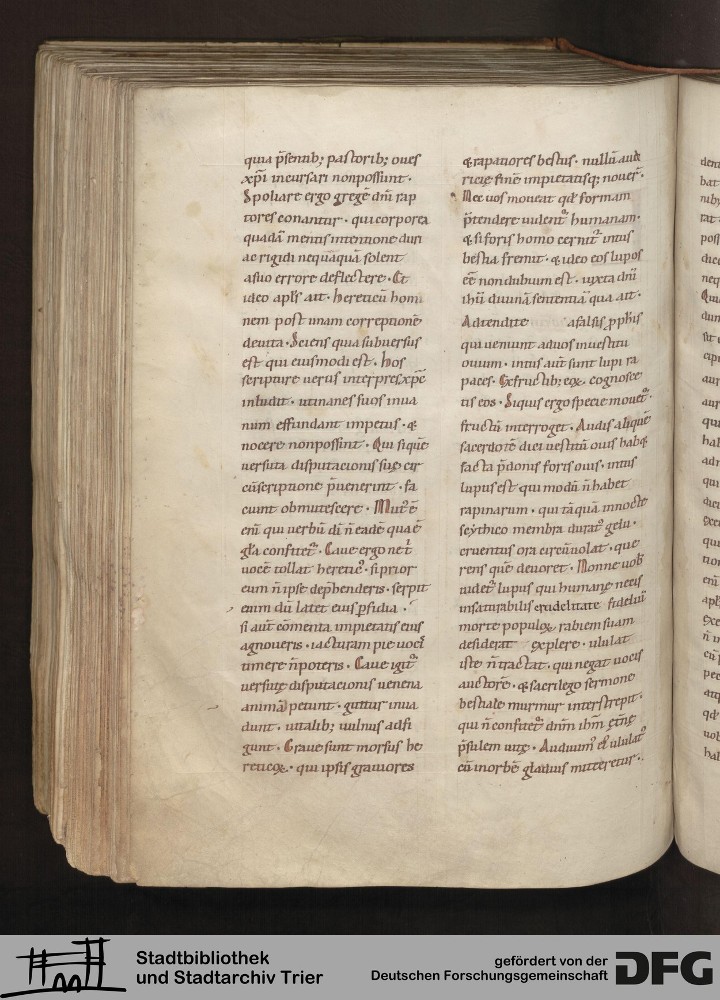 quia p̄sentib; pastorib; oues
xp̄i incursari non possunt.
Spoliare ergo gregē dn̄i rap
tores conantur. qui corporea
quadā mentis intentione duri
ac rigidi nequaquā solent
a suo errore deflectere. Et
ideo apl̄s ait. Hereticū homi
nem post unam correptionē
deuita. Sciens quia subuersus
est qui eiusmodi est. hos
scripturę uerus interpres xp̄ē
inludit. ut inanes suos inua
num effundant impetus. &
nocere non possint. Qui si quē
uersuta disputacionis suę cir
cūscriptione p̄uenerint. fa
ciunt obmutescere. Mut᷒ ē
enī qui uerbū dī n̄ eadē qua ē
gl̄a confitet᷑. Caue ergo ne t̄
uocē tollat heretic᷒. si prior
eum n̄ ipse dep̄henderis. serpit
enim dū latet eius p̄fidia.
si aut̄ cōmenta impietatis eius
agnoueris. iacturam pie uocī
timere n̄ poteris. Caue igit᷑
uersutę disputacionis uenena
animā petunt. guttur inua
dunt. uitalib; uulnus adfi
gunt. Graue sunt morsus he
reticoꝝ. qui ipsis grauiores
& rapatiores bestiis. nullū aua
ricię finē impietatisq; nouer̄.
Nec uos moueat qd̄ formam
p̄tendere uident᷑ humanam.
& si foris homo cernit᷑ intus
bestia fremit. & ideo eos lupos
eē non dubium est. iuxta dn̄i
ih̄u diuinā sententiā qua ait.
Adtendite a falsis p̱phis
qui ueniunt ad uos in uestitu
ouium. intus aut̄ sunt lupi ra
paces. Ex fructib; eoꝝ cognosce
tis eos. Si quis ergo specie mouet᷑.
fructū interroget. Audis aliquē
sacerdotē dici uestitū ouis habę
facta p̄donis foris ouis. intus
lupus est qui modū n̄ habet
rapinarum. qui tāquā innocte
scythico membra durat᷒ gelu.
cruentus ora circūuolat. quę
rens quē deuoret. Nonne uob̄
uidet᷑ lupus qui humanę necis
insaturabilis crudelitate fideliū
morte populoꝝ rabiem suam
desiderat explere. ululat
iste n̄ tractat. qui negat uocis
auctorē. & sacrilego sermone
bestiale murmur interstrepit.
qui n̄ confitet᷑ dn̄m ih̄m ęt̄nę
p̄sulem uitę. Audiuim᷒ ei᷒ ululat᷒
cū in orbē gladius mitteretur.
Stadtbibliothek
und Stadtarchiv Trier
gefördert von der
Deutschen Forschungsgemeinschaft
DFG